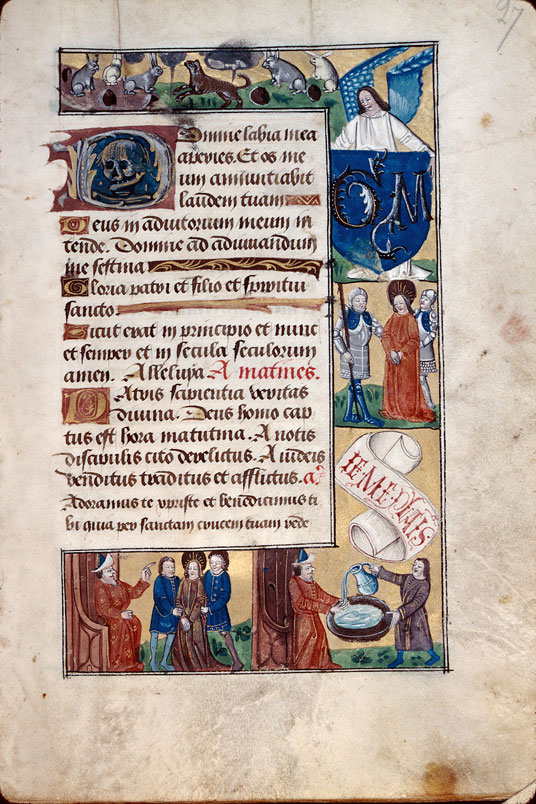 27
Domine labia mea
aperies. Et os me
um annuntiabit
laudem tuam
Deus in adiutorium meum in
tende. Domine ad adiuuandum
me festina
Gloria patri et filio et spiritui
sancto.
Sicut erat in principio et nunc
et semper et in secula seculorum
amen. Alleluya A matines.
Patris sapientia veritas
diuina. Deus homo cap
tus est hora matutina. A notis
discipulis cito derelictus. A iudeis
venditus traditus et afflictus. a.
Adoramus te xpriste et benedicimus ti
bi quia per sanctam crucem tuam rede
G M